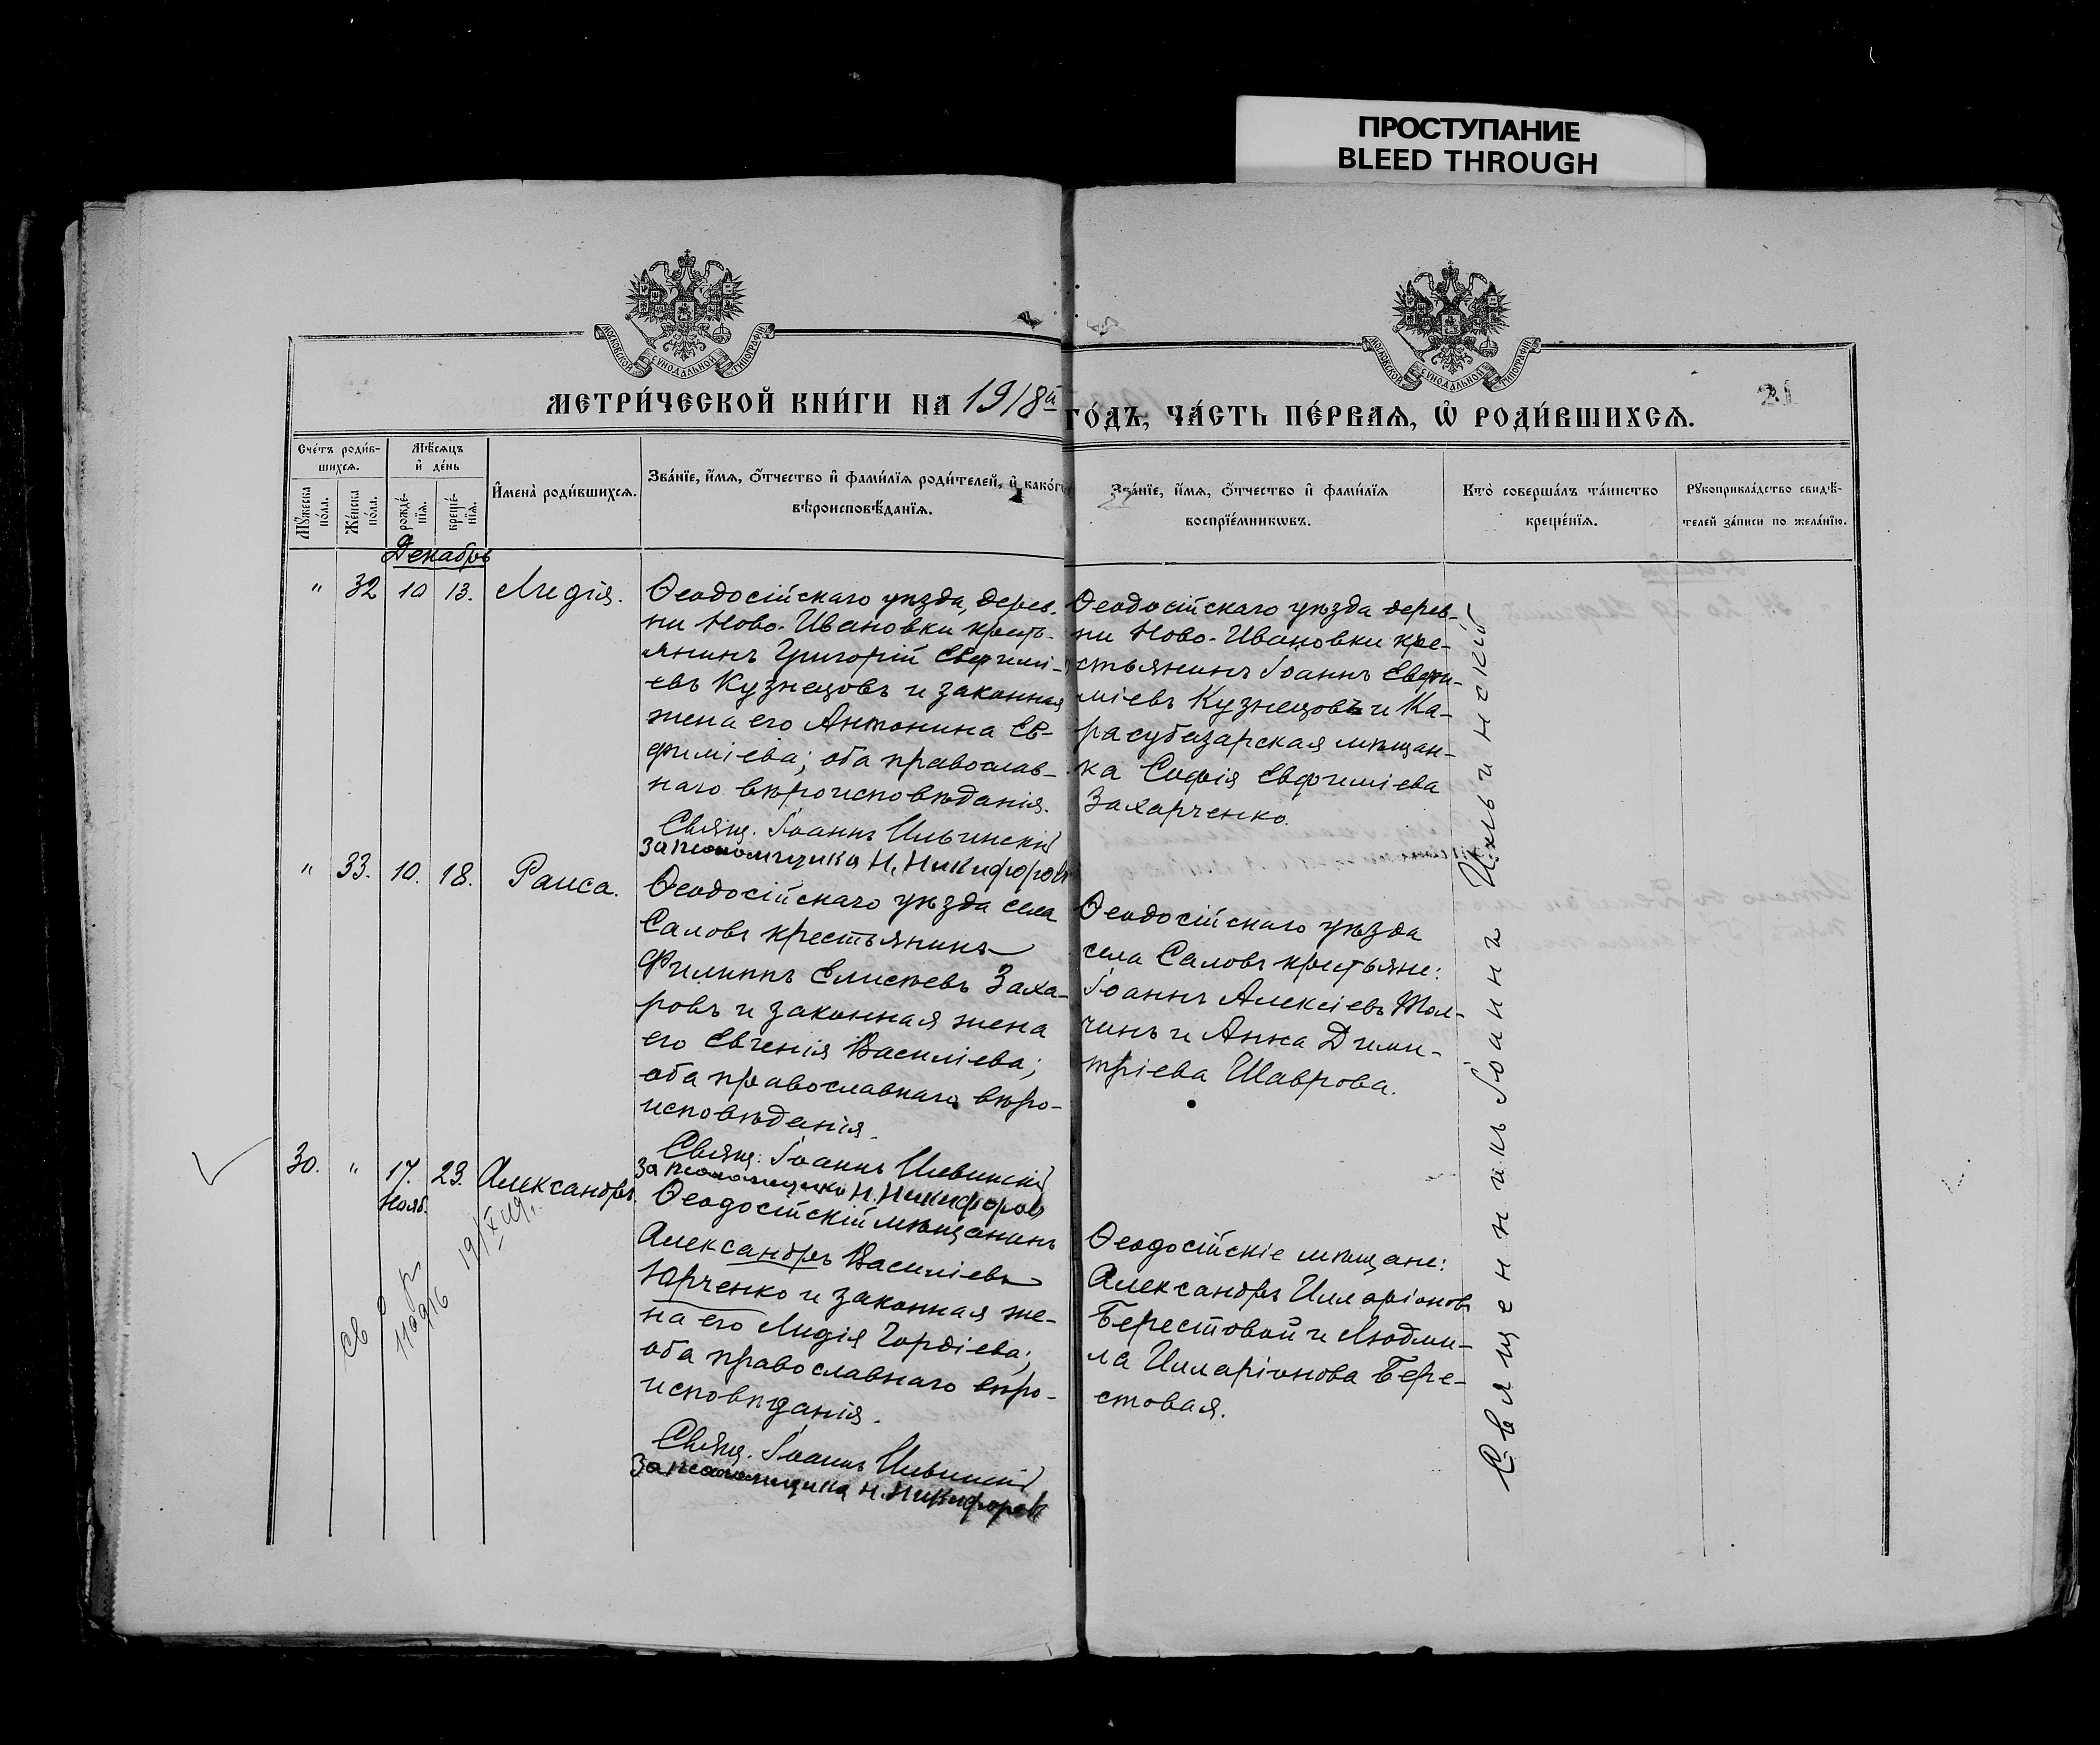 ПРОСТУПАНИЕ
BLEED THROUGH
МОСКОВСКОЙ СѴНОДАЛЬНОЙ ТИПОГРАФІИ
МОСКОВСКОЙ СѴНОДАЛЬНОЙ ТИПОГРАФІИ
21
МЕТРИ́ЧЕСКОЙ КНИ́ГИ НА 1918й
ГО́ДЪ, ЧА́СТЬ ПЕ́РВАЯ, Ѡ РОДИ́ВШИХСѦ.
Сче́тъ роди́в-
шихсѧ.
Мѣ́сѧцъ
и҆ де́нь
Мꙋ́жеска
по́ла.
Же́нска
по́ла.
рожде́-
нїѧ.
креще́-
нїѧ.
И҆мена̀ роди́вшихсѧ.
Зва́нїе, и҆́мѧ, ѻ҆́тчество и҆ фами́лїѧ роди́телей, и҆ како́гѡ
вѣроисповѣ́данїѧ.
Зва́нїе, и҆́мѧ, ѻ҆́тчество и҆ фами́лїѧ
воспрїе́мникѡвъ.
Кто̀ соверша́лъ та́инство
креще́нїѧ.
Рꙋкоприкла́дство свидѣ́-
телей за́писи по жела́нїю.
Декабрь
" 32 10 13. Лидія.
Ѳеодосійскаго уѣзда, дерев-
ни Ново-Ивановки кресть-
янинъ Григорій Евфимі-
евъ Кузнецовъ и законная
жена его Антонина Ев-
фиміева; оба православ-
наго вѣроисповѣданія.
Свящ. Іоаннъ Ильинскій
За псаломщика Н. Никифоровъ
Ѳеодосійскаго уѣзда дерев-
ни Ново-Ивановки кре-
стьянинъ Іоаннъ Евфи-
міевъ Кузнецовъ и Ка-
расубазарская мѣщан-
ка Софія Евфиміева
Захарченко.
" 33. 10. 18. Раиса.
Ѳеодосійскаго уѣзда села
Саловъ крестьянинъ
Филиппъ Елисѣевъ Заха-
ровъ и законная жена
его Евгенія Василіева;
оба православнаго вѣро-
исповѣданія.
Свящ. Іоаннъ Ильинскій
За псаломщика Н. Никифоровъ
Ѳеодосійскаго уѣзда
села Саловъ крестьяне:
Іоаннъ Алексіевъ Тол-
чинъ и Анна Дими-
тріева Шаврова.
30. " 17. 23. Александръ.
Нояб.
Ѳеодосійскій мѣщанинъ
Александръ Василіевъ
Юрченко и законная же-
на его Лидія Гордіева;
оба православнаго вѣро-
исповѣданія.
Свящ. Іоаннъ Ильинскій
За псаломщика Н. Никифоровъ
Ѳеодосійскіе мѣщане:
Александръ Илларіоновъ
Берестовой и Людми-
ла Илларіонова Бере-
стовая.
Священникъ Іоаннъ Ильинскій